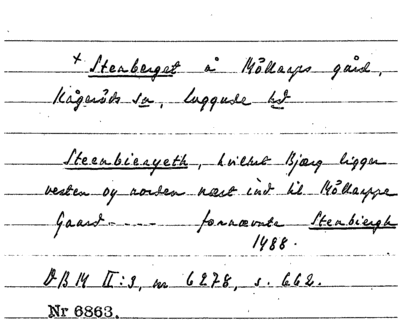 + Stenberget å Möllarps gård,
Kågeröds sn, Luggude hd
Steenbieryeth, hvilket Bjærg ligger
vesten og norden næst ind til Möllarppe
Gaard ---- fornævnte Stenbiergh
1488.
ÆDB IV II:3, nr 6278, s. 662.
Nr 6863.